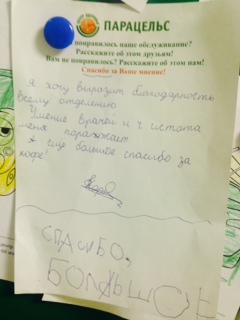 ПАРАЦЕЛЬС
понравилось наше обслуживание?
Расскажите об этом друзьям!
Вам не понравилось? Расскажите об этом нам!
Спасибо за Ваше мнение!
Я хочу выразит благодарность
всему отделению
Умение врачей и чистота
меня поражает
И еще большое спасибо за
кофе!
СПАСИБО,
БОЛЬШОЕ